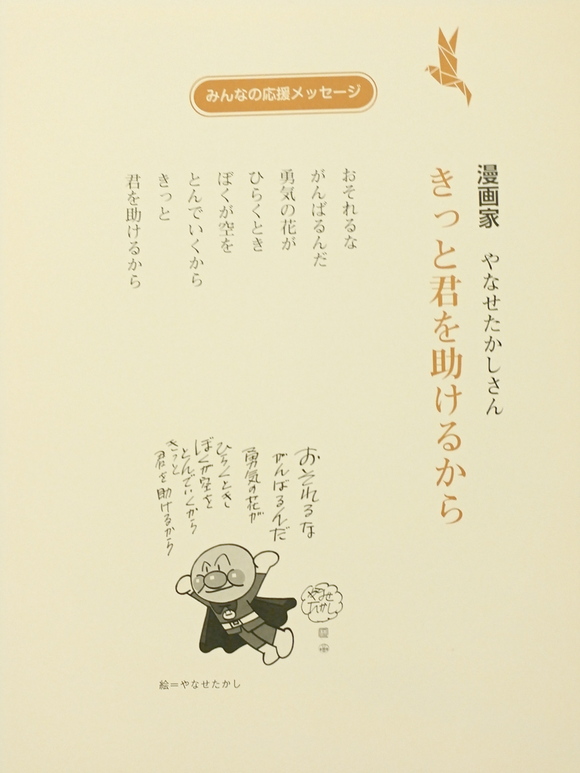 みんなの応援メッセージ
漫画家 やなせたかしさん
きっと君を助けるから
おそれるな
がんばるんだ
勇気の花が
ひらくとき
ぼくが空を
とんでいくから
きっと
君を助けるから
おそれるな
がんばるんだ
勇気の花が
ひらくとき
ぼくが空を
とんでいくから
きっと
君を助けるから
やなせ
たかし
絵=やなせたかし